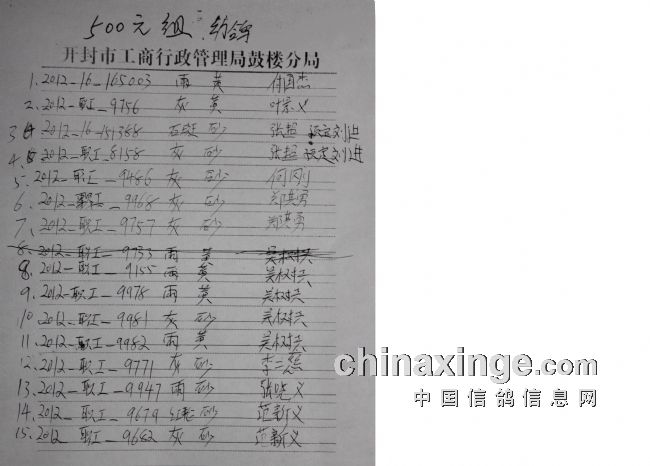 500元组 幼鸽
开封市工商行政管理局鼓楼分局
1. 2012-16-165003 雨 黄 付国杰
2. 2012-职工-9756 灰 黄 叶宗义
3 2012-16-151388 石斑 砂 张超 设定刘进
4. 2012-职工-8158 灰 砂 张超 设定刘进
5. 2012-职工-9486 灰 砂 何刚
6. 2012-职工-9968 灰 砂 郑洪勇
7. 2012-职工-9757 灰 砂 郑洪勇
8. 2012-职工-9733 雨 黄 吴权兴
8. 2012-职工-9155 雨 黄 吴权兴
9. 2012-职工-9978 雨 黄 吴权兴
10. 2012-职工-9981 灰 砂 吴权兴
11. 2012-职工-9982 雨 黄 吴权兴
12. 2012-职工-9771 灰 砂 李二
13. 2012-职工-9947 雨 砂 张晓义
14. 2012-职工-9679 红轮 砂 范新义
15. 2012 职工-9682 灰 砂 范新义
chinaxinge.com
中国信鸽信息网